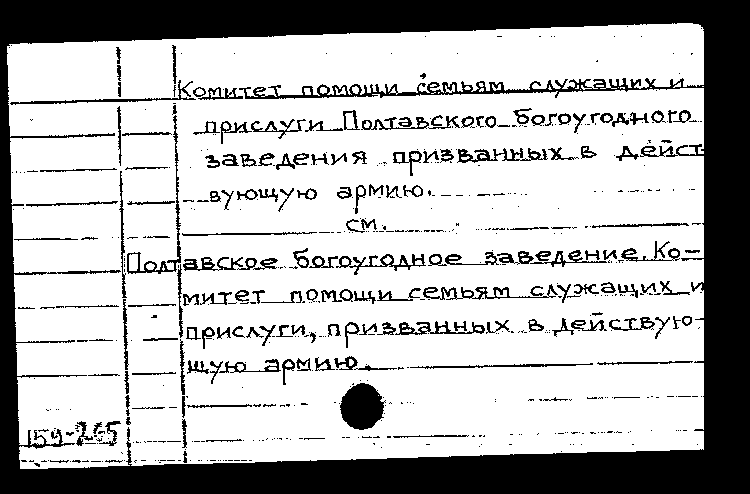 Комитет помощи семьям служащих и
прислуги Полтавского богоугодного
заведения призванных в дейст
вующую армию.
см.
Полтавское богоугодное заведение. Ко-
митет помощи семьям служащих и
прислуги, призванных в действую-
щую армию.
159-265